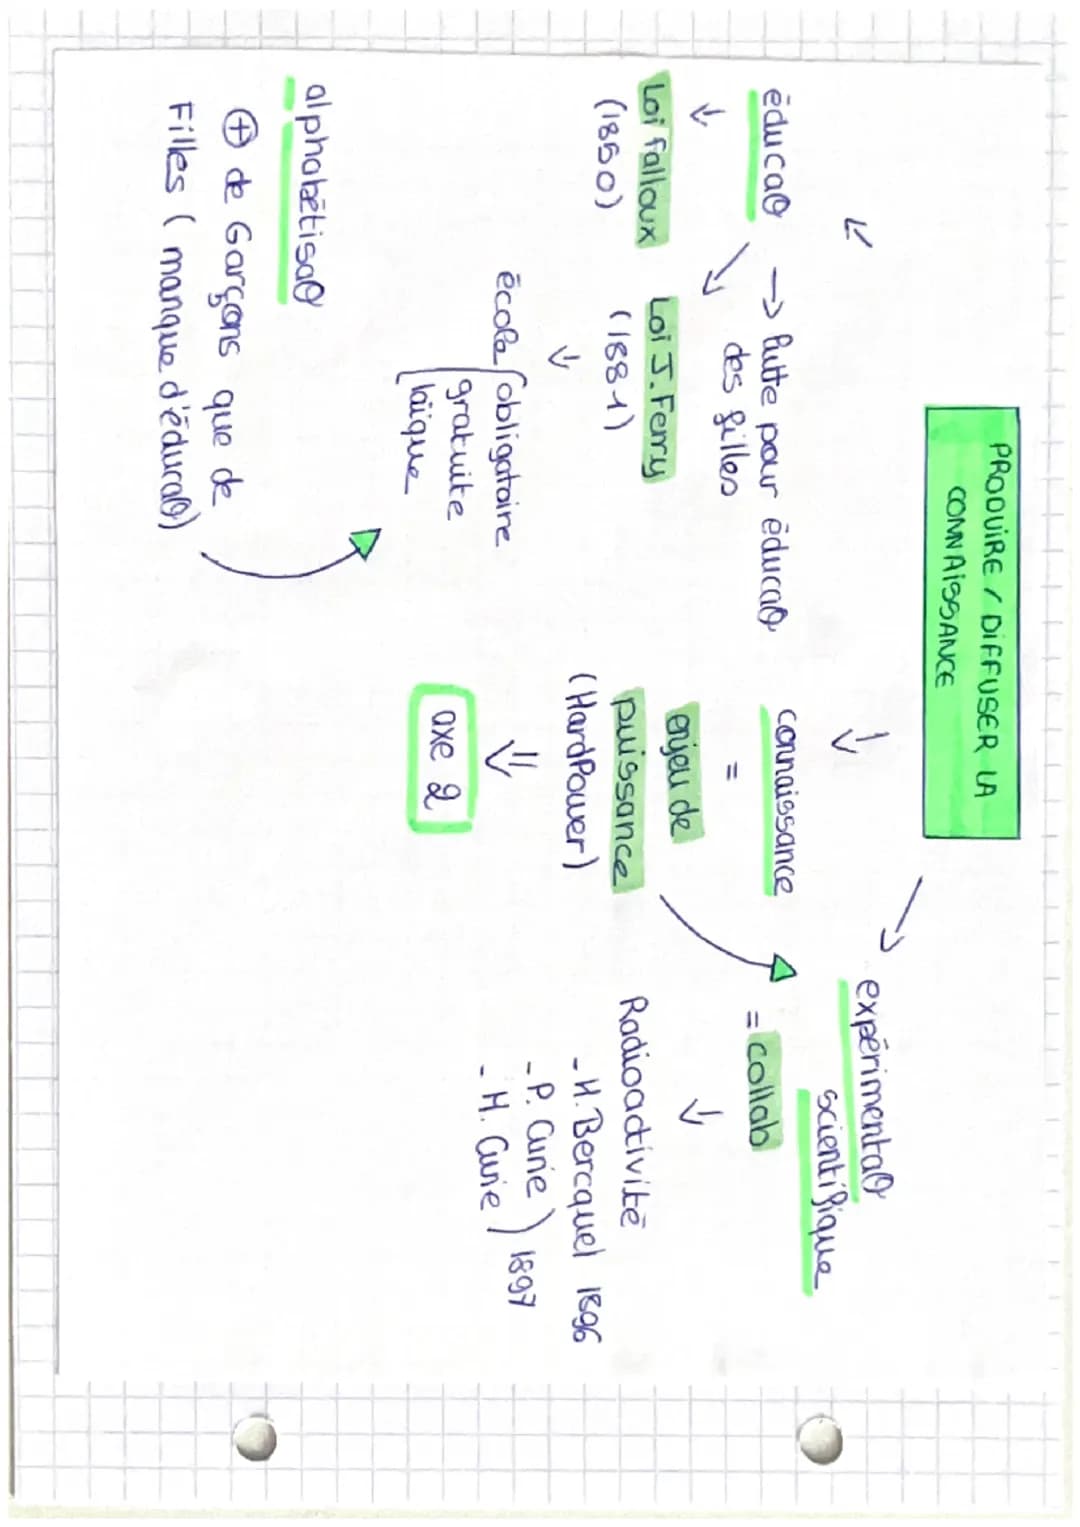 PRODUIRE / DIFFUSER LA
CONNAISSANCE
éducaO → lutte pour éducaO
des filles
Loi falloux
(1850)
Loi J. Ferry
(1881)
école obligatoire
gratuite
laïque
alphabétisaO
+ de Garçons que de
Filles (manque d'éducaO)
connaissance
=
enjeu de
puissance
(HardPower)
axe 2
expérimentaO
scientifique
= collab
Radioactivité
- H. Bercquel 1896
- P. Curie
- H. Curie ) 1897